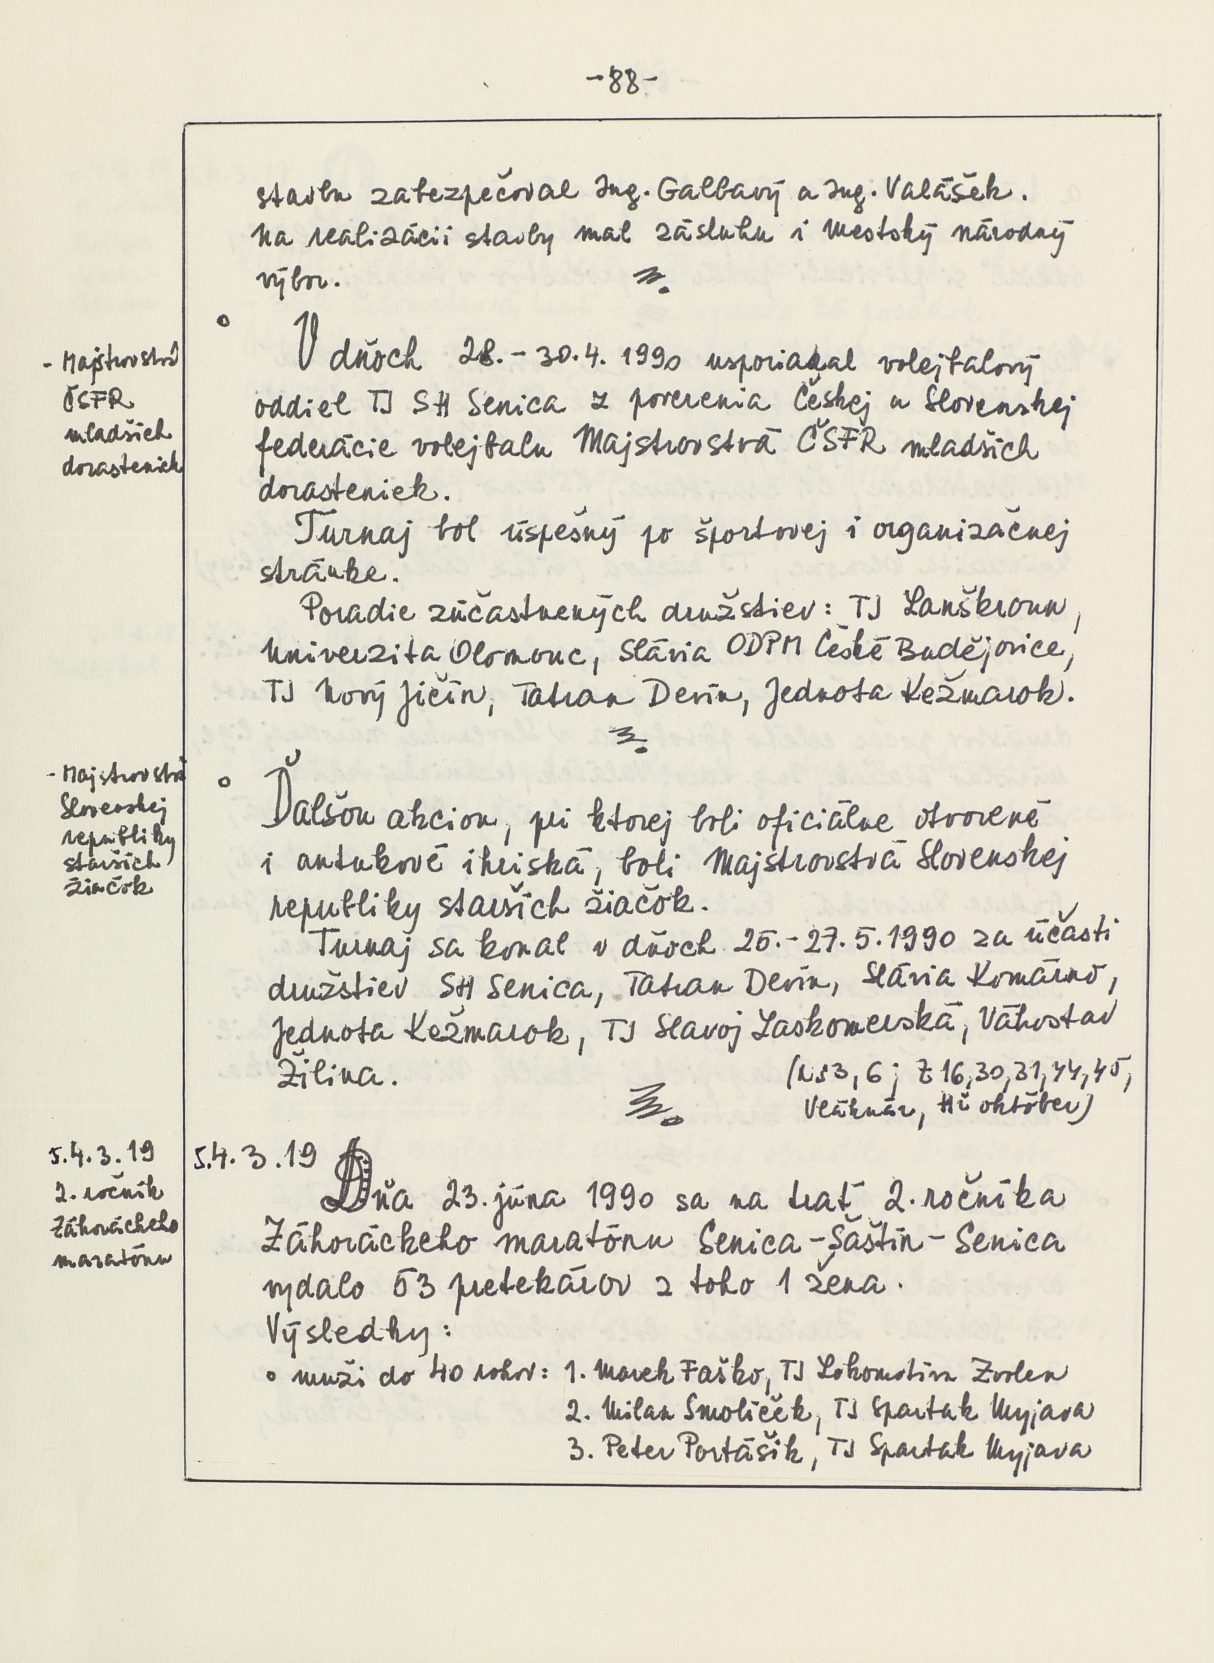 -88-
stavbu zabezpečoval Ing. Galbavý a Ing. Valášek.
Na realizácii stavby mal zásluhu i Mestský národný
výbor.
- Majstrovstvá
ČSFR
mladších
dorasteniek
V dňoch 28.-30.4. 1990 usporiadal volejbalový
oddiel TJ SH Senica z poverenia Českej a Slovenskej
federácie volejbalu Majstrovstvá ČSFR mladších
dorasteniek.
Turnaj bol úspešný po športovej i organizačnej
stránke.
Poradie zúčastnených družstiev: TJ Lanškroun,
Univerzita Olomouc, Slávia ODPM České Budějovice,
TJ Nový Jičín, Tatran Devín, Jednota Kežmarok.
- Majstrovstvá
Slovenskej
republiky
starších
žiačok
Ďalšou akciou, pri ktorej boli oficiálne otvorené
i antukové ihriská, boli Majstrovstvá Slovenskej
republiky starších žiačok.
Turnaj sa konal v dňoch 25.-27.5.1990 za účasti
družstiev SH Senica, Tatran Devín, Slávia Komárno,
Jednota Kežmarok, TJ Slavoj Laskomerská, Váhostav
Žilina.
(NS3, 6; Z 16,30,31,44,45,
Vláhnár, HŠ október)
5.4.3.19
2. ročník
Záhoráckeho
maratónu
5.4.3.19
Dňa 23. júna 1990 sa na trať 2. ročníka
Záhoráckeho maratónu Senica-Šaštín-Senica
vydalo 53 pretekárov z toho 1 žena.
Výsledky:
• muži do 40 rokov: 1. Marek Faško, TJ Lokomotíva Zvolen
2. Milan Smolíček, TJ Spartak Myjava
3. Peter Portášik, TJ Spartak Myjava